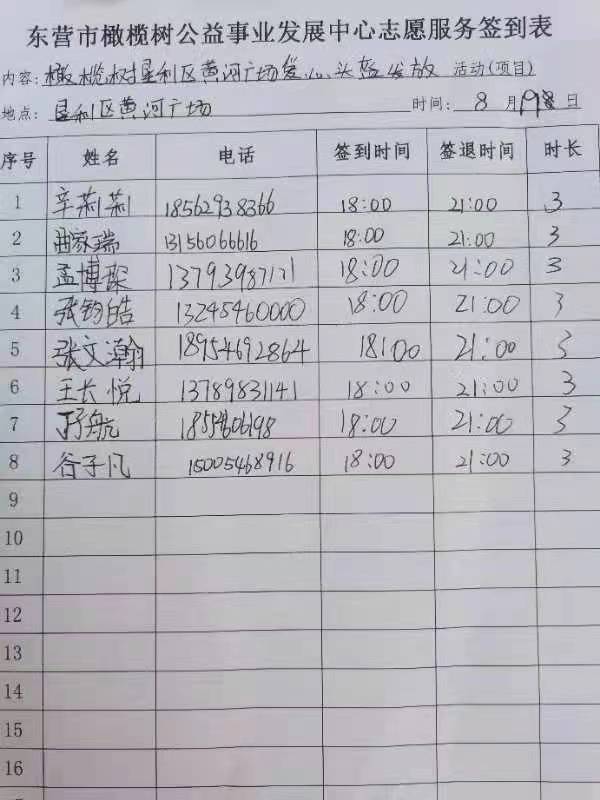 东营市橄榄树公益事业发展中心志愿服务签到表
内容:橄榄树垦利区黄河广场爱心头盔发放 活动(项目)
地点:垦利区黄河广场 时间: 8 月 日
序号 姓名 电话 签到时间 签退时间 时长
1 辛莉莉 18562938366 18:00 21:00 3
2 曲家瑞 13156066616 18:00 21:00 3
3 孟博琛 13793987171 18:00 21:00 3
4 张钧皓 13245460000 18:00 21:00 3
5 张文瀚 18954692864 18:00 21:00 3
6 王长悦 13789831141 18:00 21:00 3
7 航 18:00 21:00 3
8 谷子凡 15005468916 18:00 21:00 3
9
10
11
12
13
14
15
16